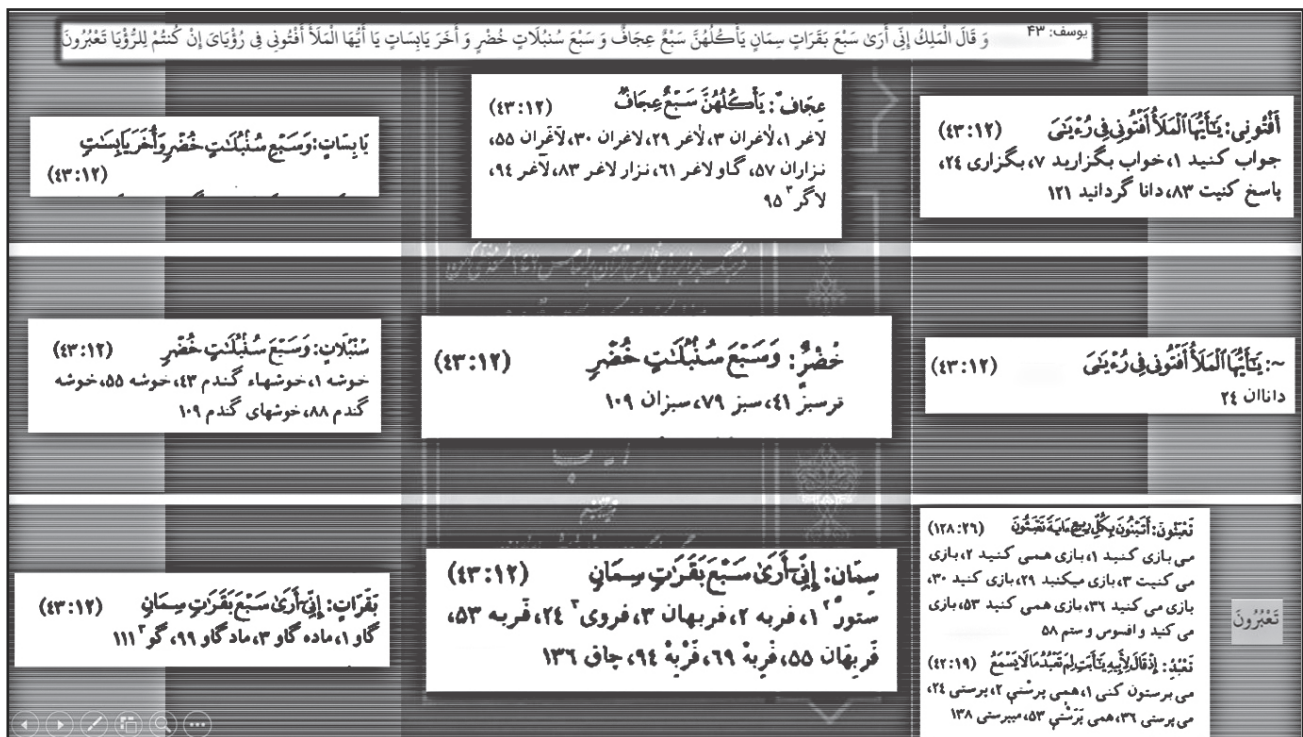 یوسف: ۴۳
وَ قَالَ الْمَلِكُ إِنِّی أَرَىٰ سَبْعَ بَقَرَاتٍ سِمَانٍ یَأْكُلُهُنَّ سَبْعٌ عِجَافٌ وَ سَبْعَ سُنبُلَاتٍ خُضْرٍ وَ أُخَرَ یَابِسَاتٍ یَا أَیُّهَا الْمَلَأُ أَفْتُونِی فِی رُؤْیَایَ إِنْ كُنتُمْ لِلرُّؤْیَا تَعْبُرُونَ
أَفْتُونِی: يَٰٓأَيُّهَا ٱلْمَلَأُ أَفْتُونِی فِی رُءْيَٰیَ (٤٣:١٢)
جواب کنید ۱، خواب بگزارید ۷، بگزاری ۲۴،
پاسخ کنیت ۸۳، دانا گردانید ۱۲۱
عِجَافٌ: يَأْكُلُهُنَّ سَبْعٌ عِجَافٌ (٤٣:١٢)
لاغر ۱، لاغران ۳، لاغر ۲۹، لاغران ۳۰، لآغران ۵۵،
نزاران ۵۷، گاو لاغر ۶۱، نزار لاغر ۸۳، لآغر ۹۴،
لاگر۳ ۹۵
یَابِسَاتٍ: وَسَبْعِ سُنْبُلَٰتٍ خُضْرٍ وَأُخَرَ يَابِسَٰتٍ
(٤٣:١٢)
~: يَٰٓأَيُّهَا ٱلْمَلَأُ أَفْتُونِی فِی رُءْيَٰیَ (٤٣:١٢)
داناان ۲۴
خُضْرٌ: وَسَبْعَ سُنْبُلَٰتٍ خُضْرٍ (٤٣:١٢)
ترسبز ۴۱، سبز ۷۹، سبزان ۱۰۹
سُنْبُلَاتٍ: وَسَبْعَ سُنْبُلَٰتٍ خُضْرٍ (٤٣:١٢)
خوشه ۱، خوشهاء گندم ۴۳، خوشه ۵۵، خوشه
گندم ۸۸، خوشهای گندم ۱۰۹
تَعْبَثُونَ: أَتَبْنُونَ بِكُلِّ رِيعٍ ءَايَةً تَعْبَثُونَ (١٢٨:٢٦)
می بازی کنید ۱، بازی همی کنید ۲، بازی
می کنیت ۳، بازی میکنید ۲۹، بازی کنید ۳۰،
بازی می کنید ۳۶، بازی همی کنید ۵۳، بازی
می کنید و افسوس و ستم ۵۸
تَعْبُدُ: إِذْ قَالَ لِأَبِيهِ يَٰٓأَبَتِ لِمَ تَعْبُدُ مَا لَا يَسْمَعُ (٤٢:١٩)
می برستون کنی ۱، همی پرستی ۲، پرستی ۲۴،
می پرستی ۳۶، همی پَرَستی ۵۳، میپرستی ۱۳۸
تَعْبُرُونَ
سِمَان: إِنِّیٓ أَرَىٰ سَبْعَ بَقَرَٰتٍ سِمَانٍ (٤٣:١٢)
ستور۲ ۱، فربه ۲، فربهان ۳، فروی۳ ۲۴، فَربه ۵۳،
فَربِهان ۵۵، فَرِبهْ ۶۹، فَرْبِهْ ۹۴، چاق ۱۳۶
بَقَرَاتٍ: إِنِّیٓ أَرَىٰ سَبْعَ بَقَرَٰتٍ سِمَانٍ (٤٣:١٢)
گاو ۱، ماده گاو ۳، مادگاو ۹۹، گو۳ ۱۱۱